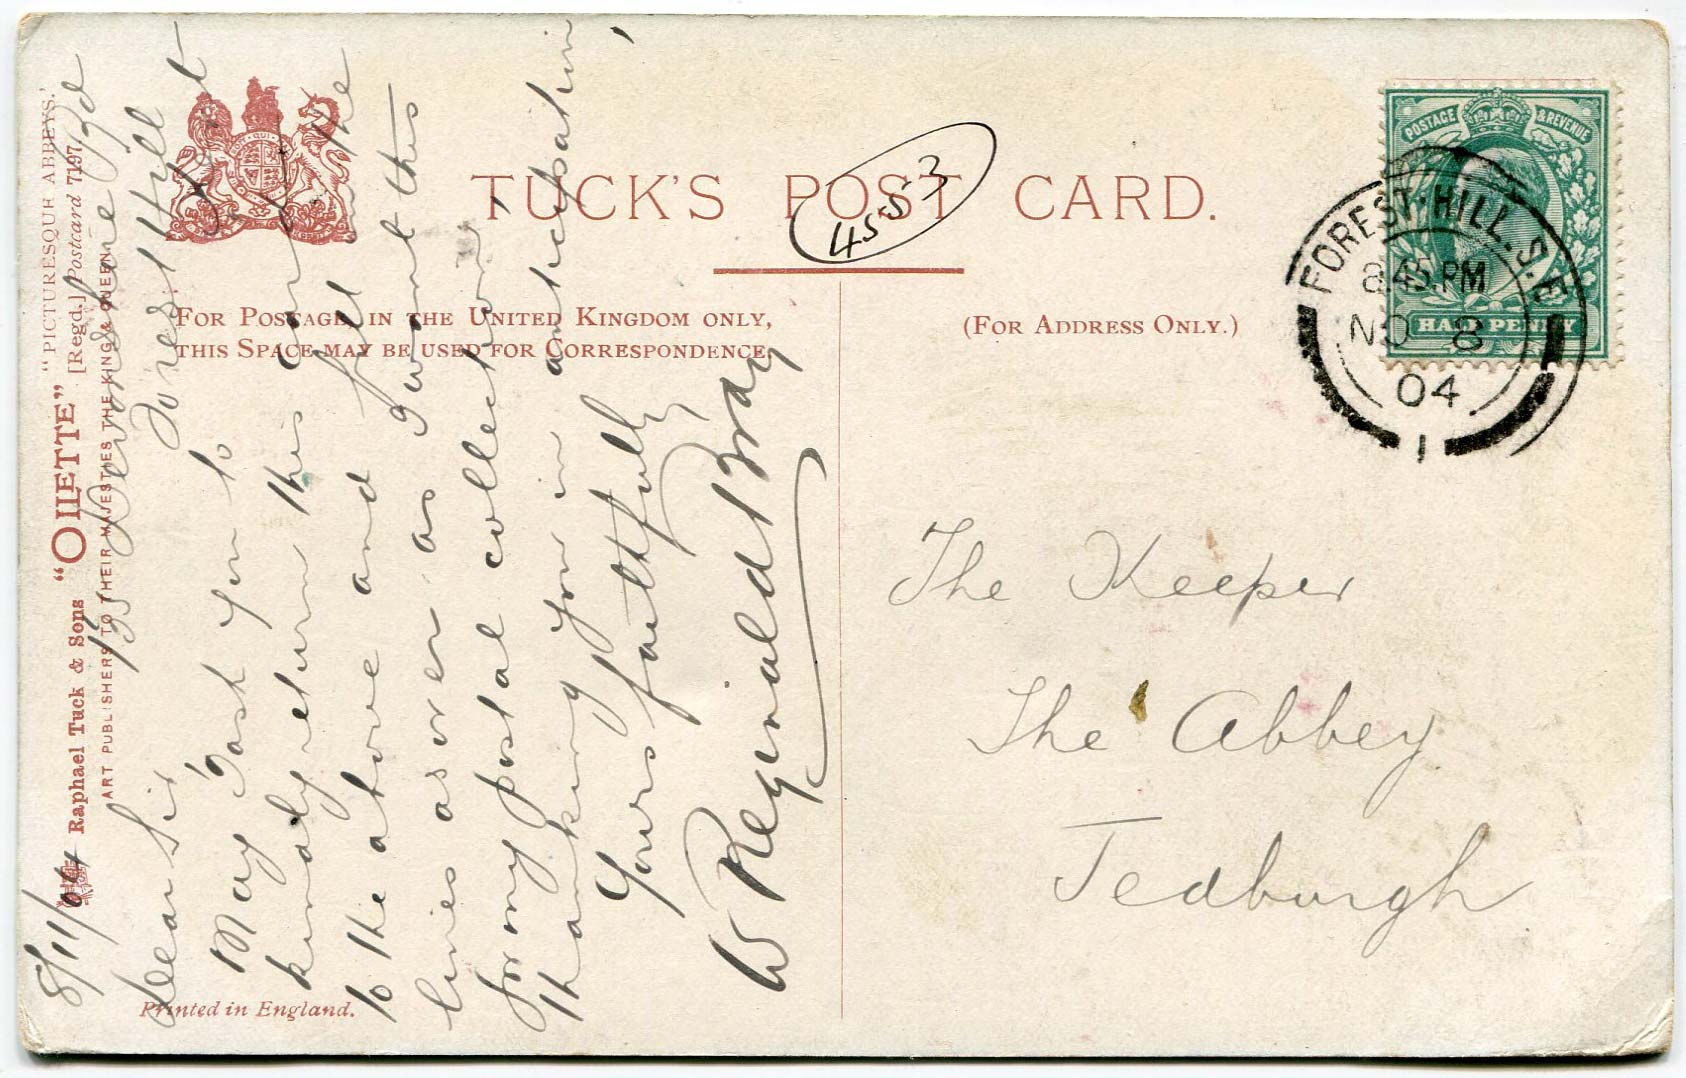 TUCK'S POST CARD.
4553
FOR POSTAGE IN THE UNITED KINGDOM ONLY,
THIS SPACE MAY BE USED FOR CORRESPONDENCE.
(FOR ADDRESS ONLY.)
POSTAGE & REVENUE
HALFPENNY
FOREST-HILL. S.E
8.45.PM
NO 8
04
1
"PICTURESQUE ABBEYS."
[Regd.] Postcard 7197.
Raphael Tuck & Sons "OILETTE"
ART PUBLISHERS TO THEIR MAJESTIES THE KING & QUEEN.
Printed in England.
8/11/04
135 Devonshire Rd
Forest Hill
Dear Sir
May I ask you to
kindly return this card
to the above and fill in the
lines as over as I want this
for my postal collection.
Thanking you in anticipation
Yours faithfully,
W Reginald Bray
The Keeper
The Abbey
Jedburgh